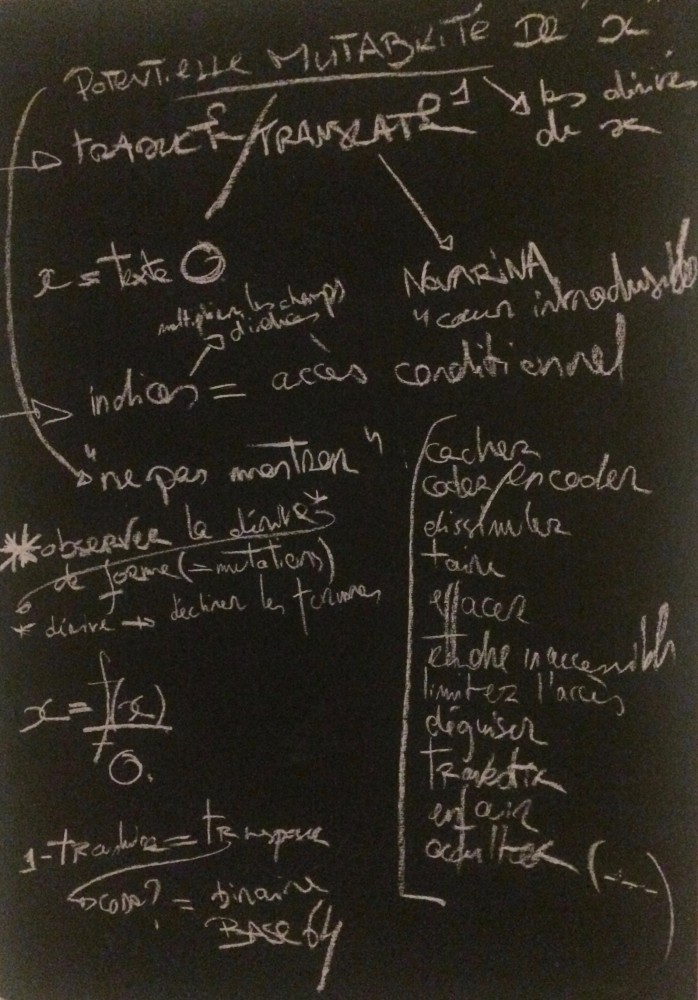 POTENTIELLE MUTABILITÉ DE x
les dérives
de x
TRADUCTº/TRANSLATº 1
x = texte O
NOVARINA
multiplier les champs
d'indices
"cœur intraduisible
indices = accès conditionnel
"ne pas montrer"
*observer la dérive*
de forme (= mutations)
* dérive → décliner les formes
x = f(x)
O.
1- traduire = transposer
→ CODA? = binaire
BASE 64
cacher
coder/encoder
dissimuler
taire
effacer
rendre inaccessible
limiter l'accès
déguiser
travestir
enfouir
occulter
(...)